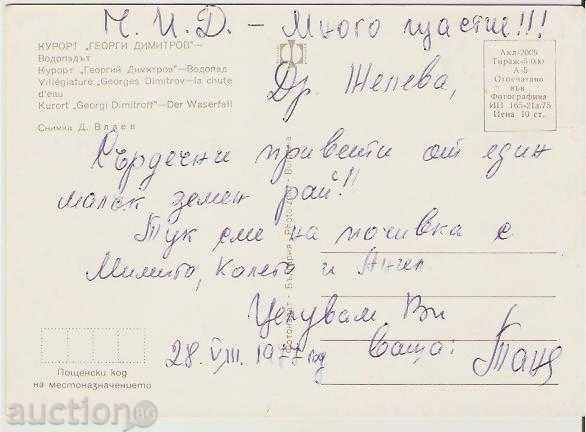 Ч. И. Д. – Много щастие!!!
КУРОРТ „ГЕОРГИ ДИМИТРОВ"—
Водопадът
Курорт „Георгий Димитров"—Водопад
Villégiature „Georges Dimitrov—la chute
d'eau
Kurort „Georgi Dimitroff"—Der Waserfall
Снимка Д. Влаев
Акл/2009
Тираж-5 000
А-5
Отпечатано
във
Фотографика
ИП 165-21л/75
Цена 10 ст.
Др. Желева,
Сърдечни привети от един
малък земен рай!!
Тук сме на почивка с
Милита, Калета и Ангел
Целувам Ви
28. VIII. 1977 год
Ваша: Таня
Фотоиздат - България - Bulgaria
Пощенски код
на местоназначението
auction BG